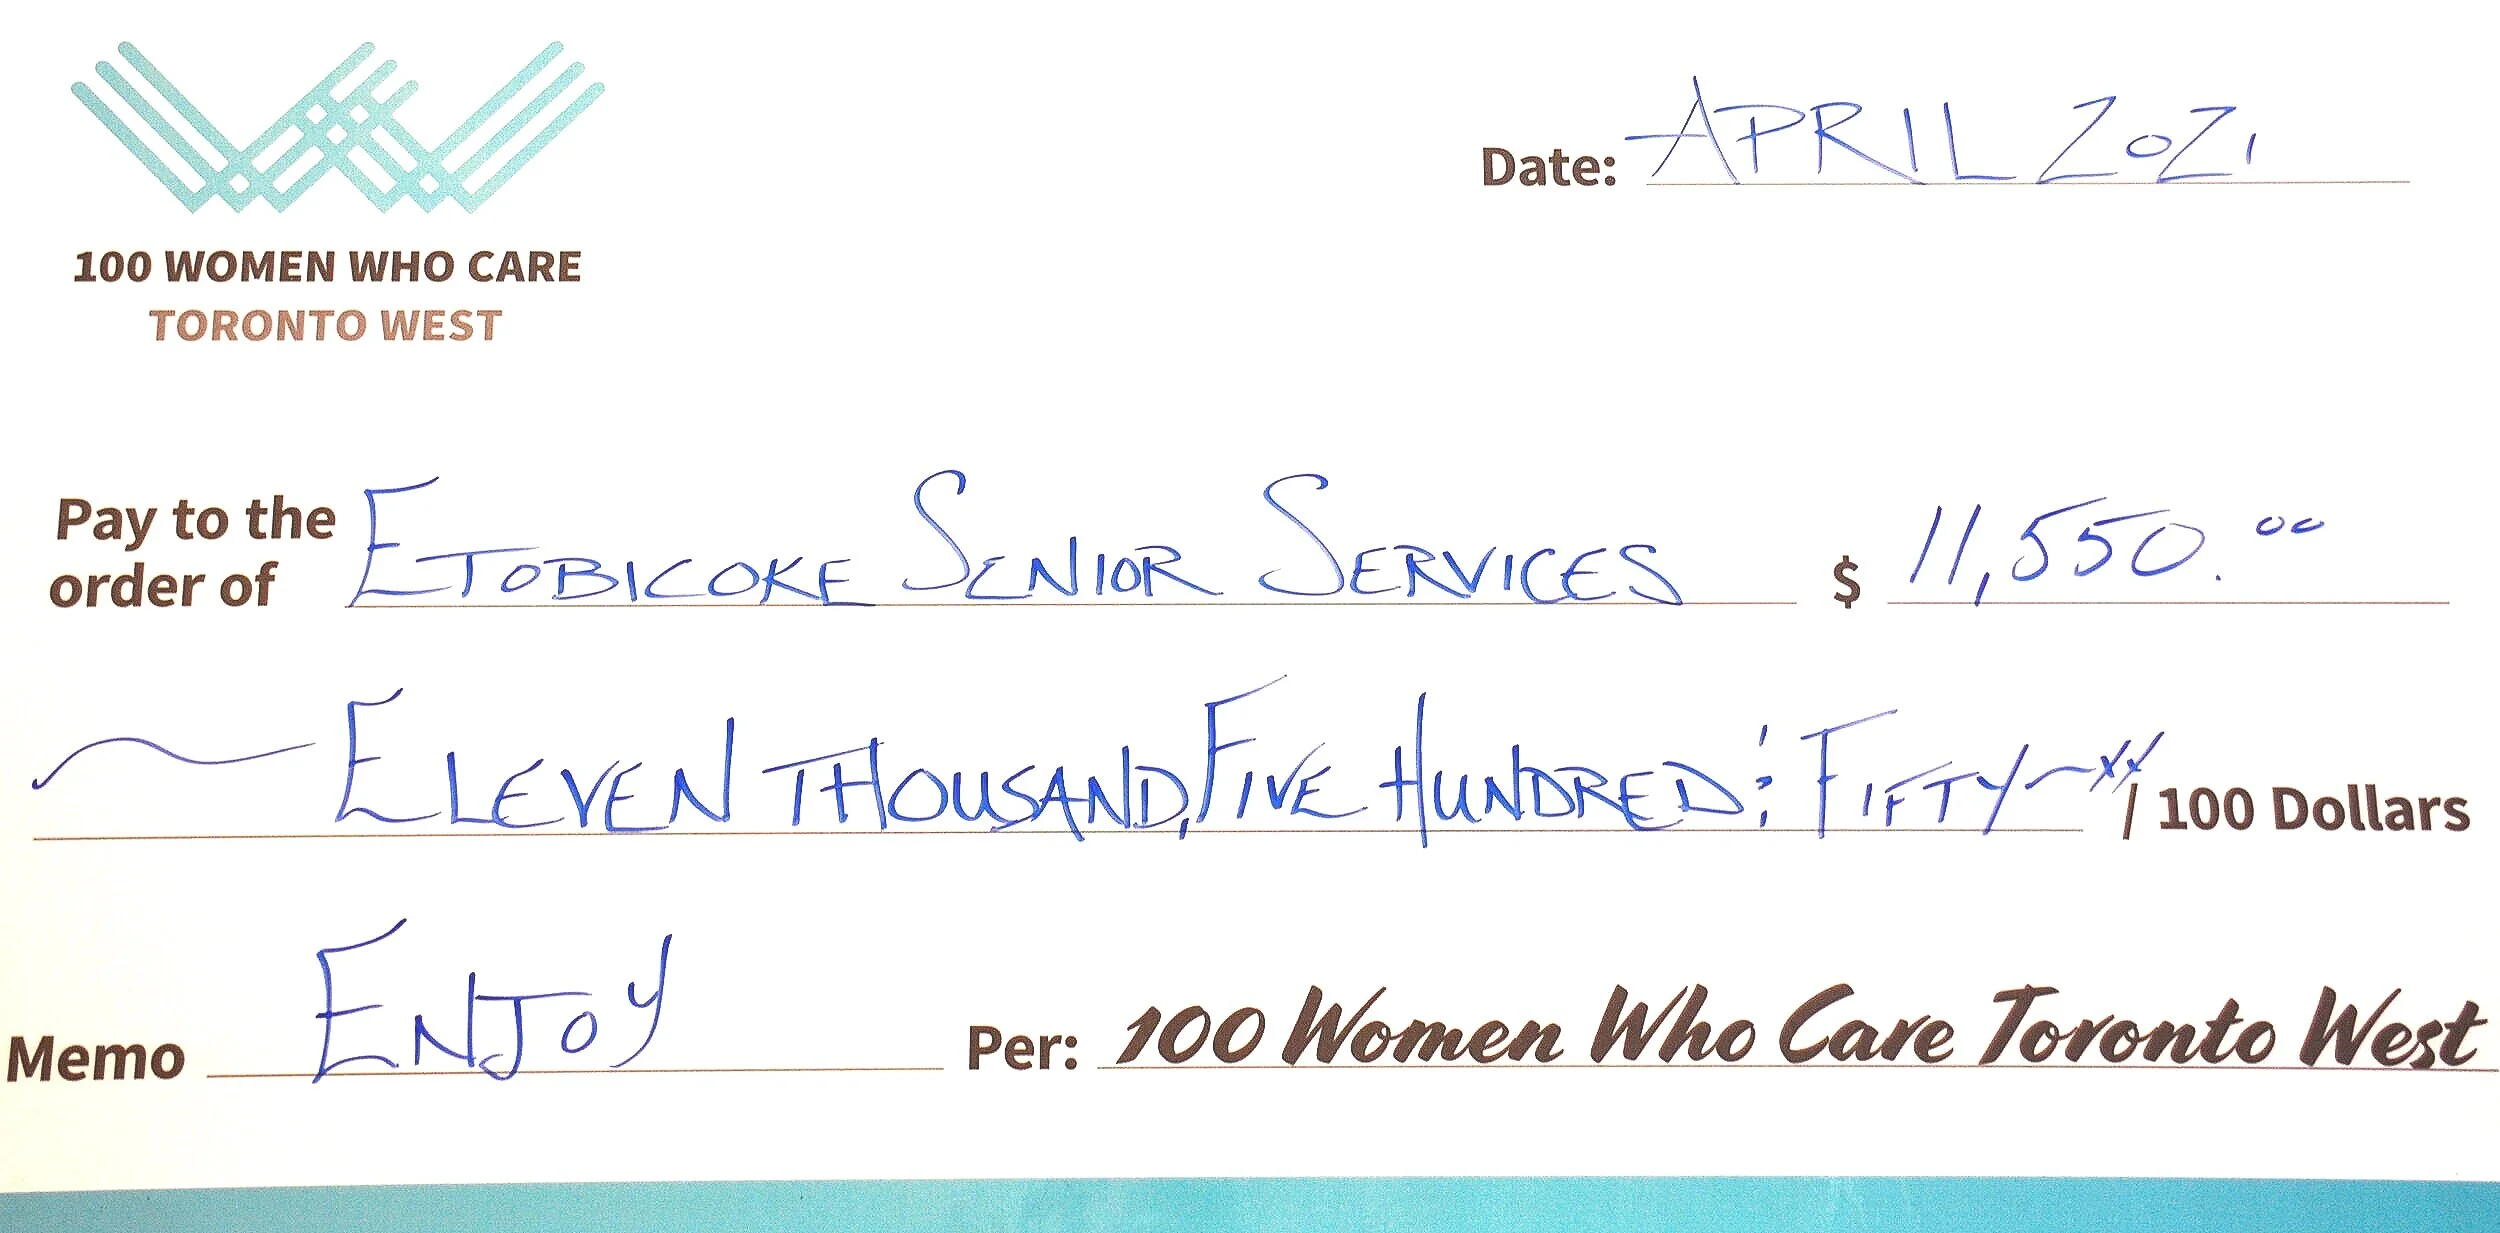 Date: APRIL 2021
100 WOMEN WHO CARE
TORONTO WEST
Pay to the order of ETOBICOKE SENIOR SERVICES $ 11,550.00
ELEVEN THOUSAND, FIVE HUNDRED & FIFTY ~ xx / 100 Dollars
Memo ENJOY Per: 100 Women Who Care Toronto West